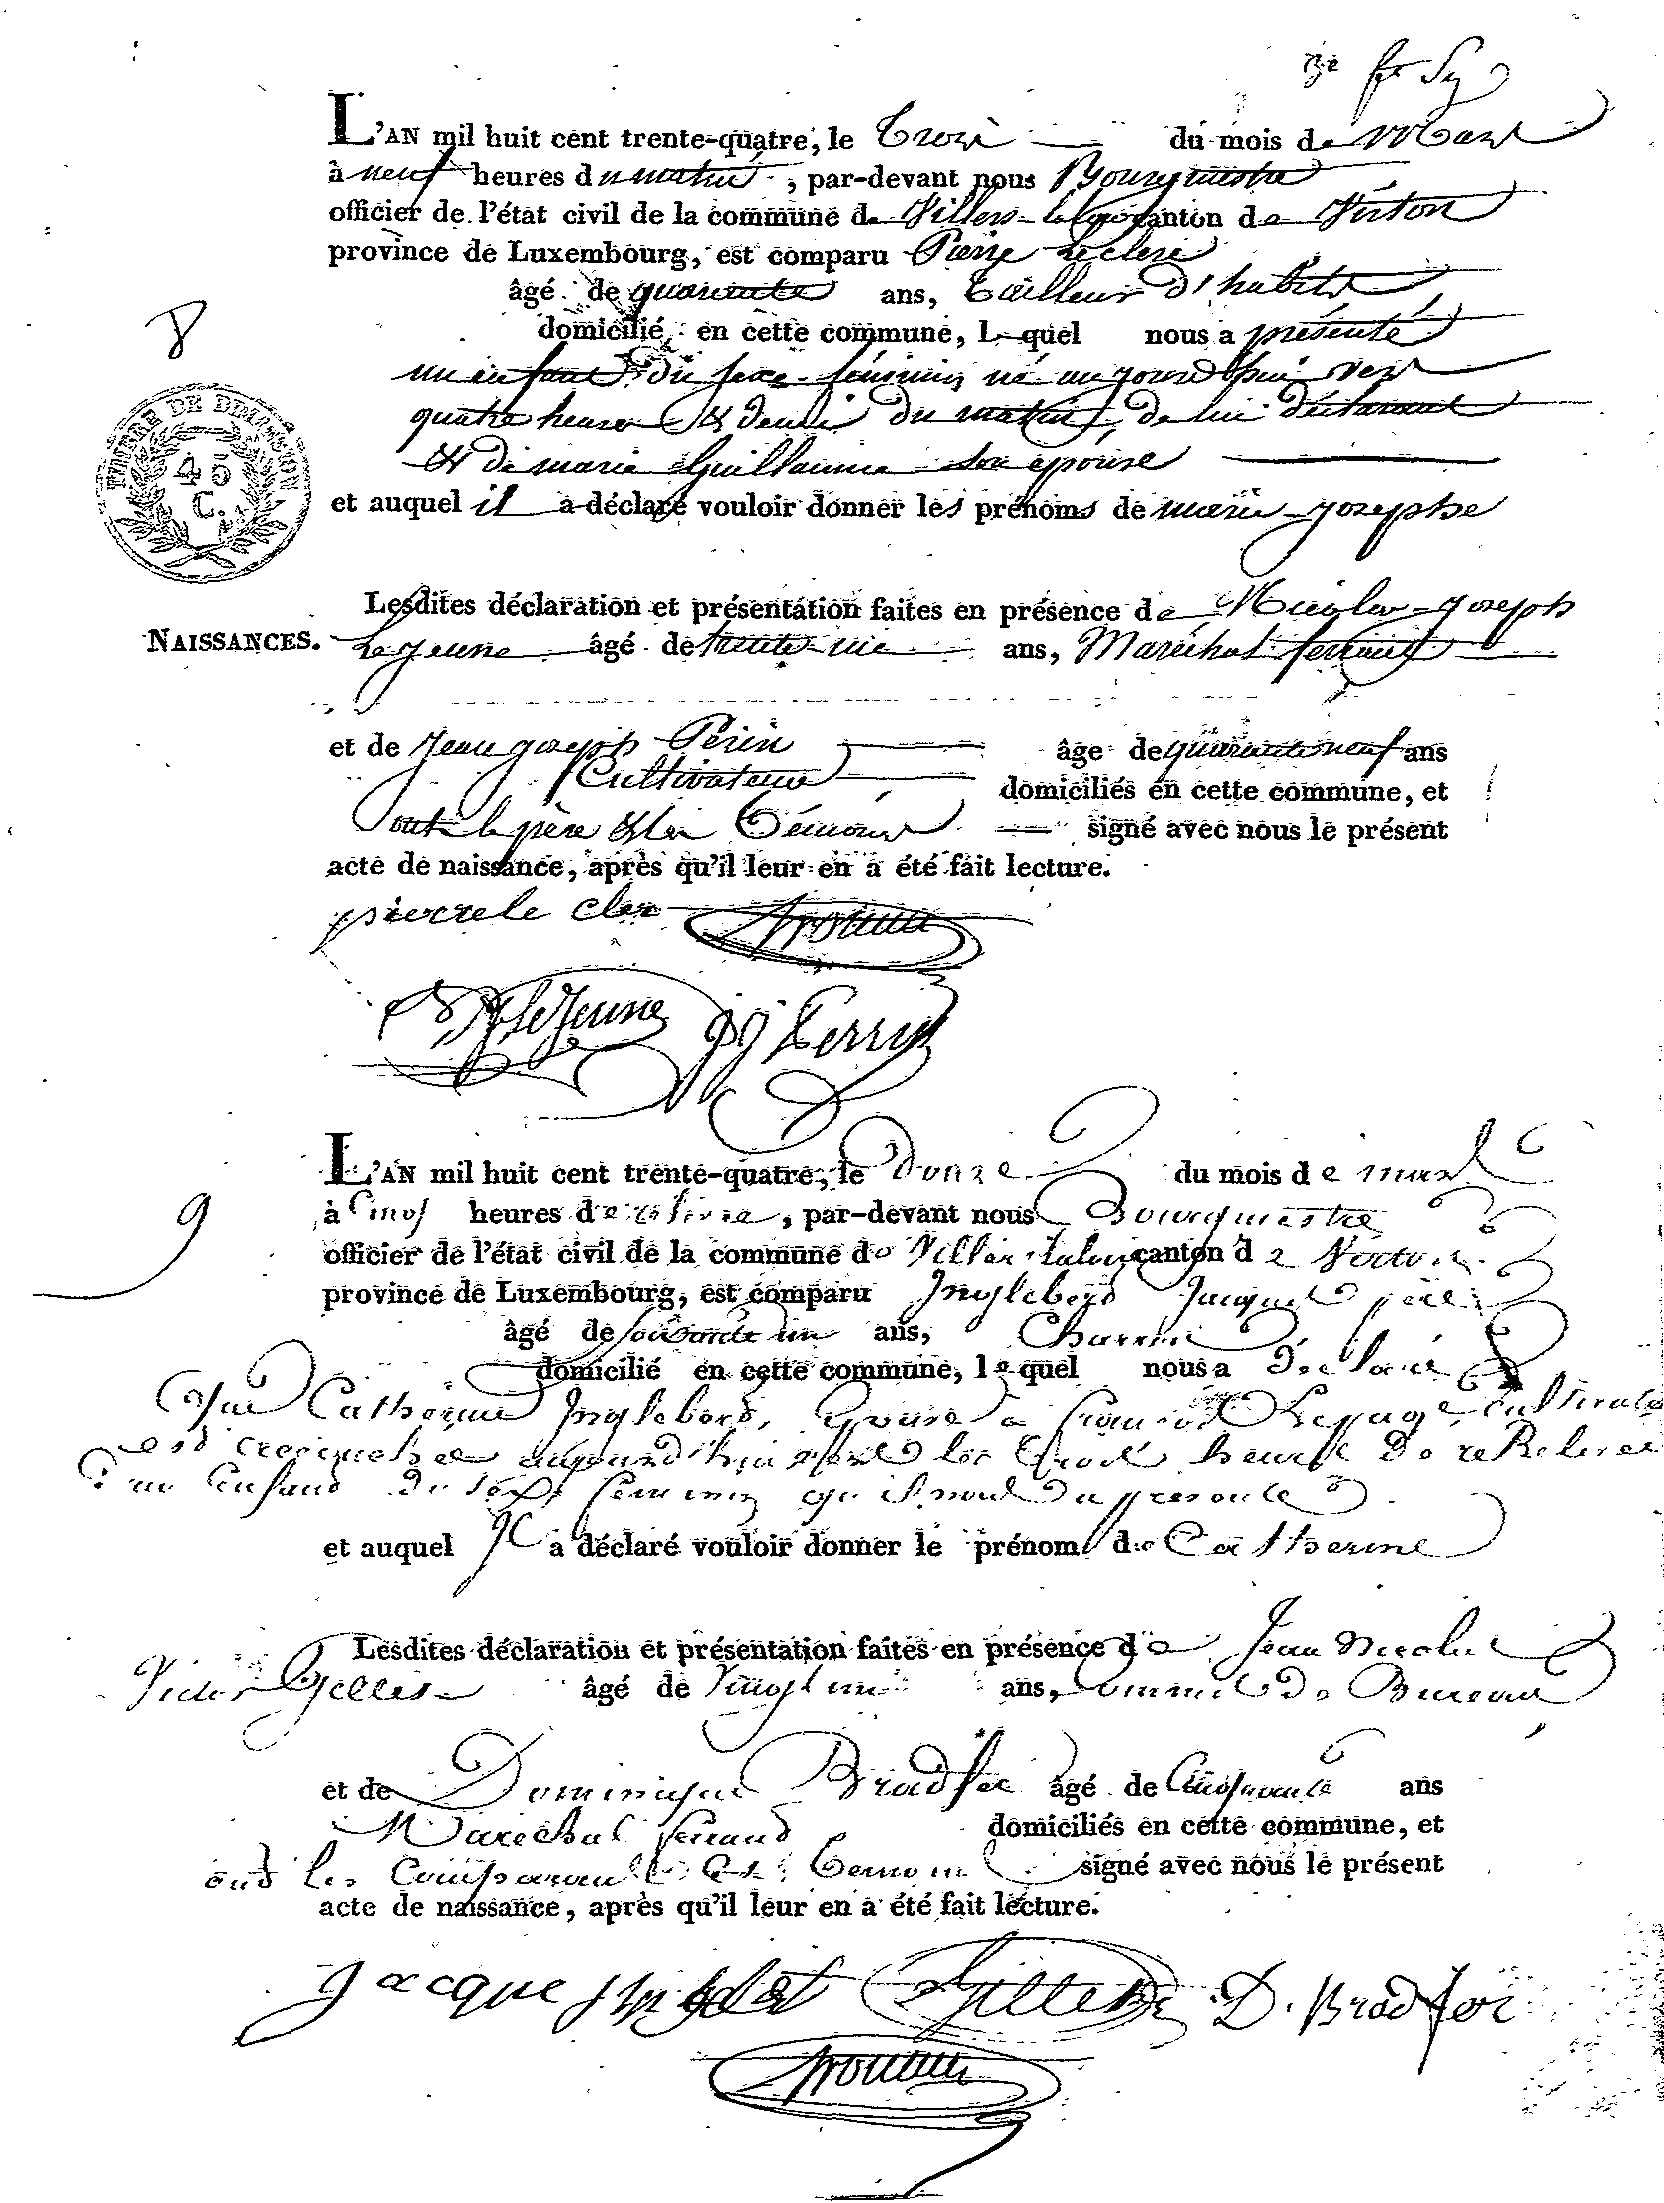 L'AN mil huit cent trente-quatre, le trois du mois de Mars
à neuf heures du matin, par-devant nous Bourgmestre
officier de l'état civil de la commune de Villers-la-loue canton de Virton
province de Luxembourg, est comparu Pierre Leclerc
8
âgé de quarante ans, tailleur d'habits
domicilié en cette commune, Lequel nous a présenté
un enfant du sexe féminin né aujourd'hui vers
quatre heures et demie du matin, de lui déclarant
et de marie Guillaume son épouse
TIMBRE DE DIMENSION
45
C.
et auquel il a déclaré vouloir donner les prénoms de marie-josephe
Lesdites déclaration et présentation faites en présence de Nicolas-joseph
NAISSANCES.
Lejeune âgé de trente-un ans, Maréchal ferrant
et de Jean joseph Perin âgé de quarante neuf ans
Cultivateur
domiciliés en cette commune, et
ont le père et les témoins signé avec nous le présent
acte de naissance, après qu'il leur en a été fait lecture.
pierre le cler
Lejeune JJ Perrin
L'AN mil huit cent trente-quatre, le douze du mois de mars
9
à cinq heures de relevée, par-devant nous Bourgmestre
officier de l'état civil de la commune de Villers-laloue canton de Virton
province de Luxembourg, est comparu Jacques
âgé de soixante un ans, Charron
domicilié en cette commune, lequel nous a déclaré
que Catherine épouse à François Lepage cultivateur
est accouchée aujourd'hui vers les trois heures de relevée
d'un enfant du sexe féminin qu'il nous a présenté
et auquel il a déclaré vouloir donner le prénom de Catherine
Lesdites déclaration et présentation faites en présence de Jean Nicolas
Victor Gillet âgé de vingt un ans, commis de Bureau
et de Dominique Bradfer âgé de cinquante ans
Maréchal ferrand
domiciliés en cette commune, et
ont les comparants et témoins signé avec nous le présent
acte de naissance, après qu'il leur en a été fait lecture.
Jacque Gillet D. Bradfer